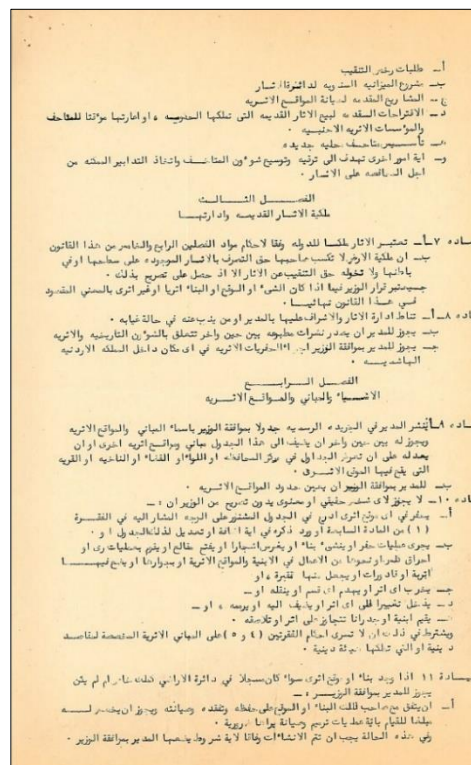 أ ـ طلبات رخص التنقيب
ب ـ مشروع الميزانيه السنويه لدائرة الاثار
ج ـ المشاريع المقدمه لصيانة المواقع الاثريه
د ـ الاقتراحات المقدمه لبيع الاثار القديمه التي تملكها الحكومه او اعارتها مؤقتا للمتاحف
والمؤسسات الاثريه الاجنبيه ٠
هـ ـ تأسيس متاحف محليه جديده
و ـ اية امور اخرى تهدف الى ترقية وتوسيع شوءون المتاحف واتخاذ التدابير الممكنه من
اجل المحافظه على الاثار ٠
الفصل الثالث
ملكية الاثار القديمه وادارتها
ماده ٧ـ أ ـ تعتبر الاثار ملكا للدوله وفقا لاحكام مواد الفصلين الرابع والخامس من هذا القانون
ب ـ ان ملكية الارض لا تكسب صاحبها حق التصرف بالاثار الموجوده على سطحها او في
باطنها ولا تخوله حق التنقيب عن الاثار الا اذ حصل على تصريح بذلك ٠
ج ـ يعتبر قرار الوزير فيما اذا كان الشيء او الموقع او البناء اثريا او غير اثرى بالمعنى المقصود
في هذا القانون نهائيا ٠
ماده ٨ـ أ ـ تناط ادارة الاثار والاشراف عليها بالمدير او من ينوب عنه في حالة غيابه ٠
ب ـ يجوز للمدير ان يصدر نشرات مطبوعه بين حين واخر تتعلق بالشوءون التاريخيه والاثريه
ج ـ يجوز للمدير بموافقة الوزير اجراء الحفريات الاثريه في اى مكان داخل المملكه الاردنيه
الهاشميه ٠
الفصل الرابع
الاشياء والمباني والمواقع الاثريه
ماده ٩ـ أ ـ ينشر المدير في الجريده الرسميه جدولا بموافقة الوزير باسماء المباني والمواقع الاثريه
ويجوز له بين حين واخر ان يضيف الى هذا الجدول مباني ومواقع اثريه اخرى او ان
يعدله على ان تعرض الجداول في مركز المحافظه او اللواء او القضاء او الناحيه او القريه
التي يقع فيها الموقع الاثرى ٠
ب ـ للمدير بموافقة الوزير ان يعين حدود المواقع الاثريه ٠
ماده ١٠ـ لا يجوز لاى شخص حقيقي او معنوى بدون تصريح من الوزير ان :ـ
أ ـ يحفر في اى موقع اثرى ادرج في الجدول المنشور على الوجه المشار اليه في الفقرة
( ١ ) من المادة السابعة او ورد ذكره في اية اضافة او تعديل لذلك الجدول او ٠
ب ـ يجرى عمليات حفر او ينشىء بناء او يغرس اشجارا او يفتح مقالع او يقوم بعمليات رى او
احراق او نحوها من الاعمال في الابنية والمواقع الاثرية او بجوارها او يضع فيها
اتربة او قاذورات او يجعل منها مقبرة ، او
ج ـ يخرب اى اثر او يهدم اى قسم او ينقله او ـ
د ـ يدخل تغييرا على اى اثر او يضيف اليه او يرممه ، او ـ
يقيم ابنية او جدرانا تتجاوز على اثر او تلاصقه ٠
ويشترط في ذلك ان لا تسرى احكام الفقرتين ( ٤ و ٥ ) على المباني الاثرية المخصصة لمقاصد
دينية او التي تملكها هيئة دينية ٠
مادة ١١ اذا وجد بناء او موقع اثرى سواء كان مسجلا في دائرة الاراضي كملك خاص ام لم يكن
يجوز للمدير بموافقة الوزير :ـ
أ ـ ان يتفق مع صاحب ذلك البناء او الموقع على حفظه وتفقده وصيانته ويجوز ان يخصص له
مبلغا للقيام باية عمليات ترميم وصيانة يراها ضرورية ٠
وفي هذه الحالة يجب ان تتم الانشاءات وفقا لاية شروط يضعها المدير بموافقة الوزير ٠